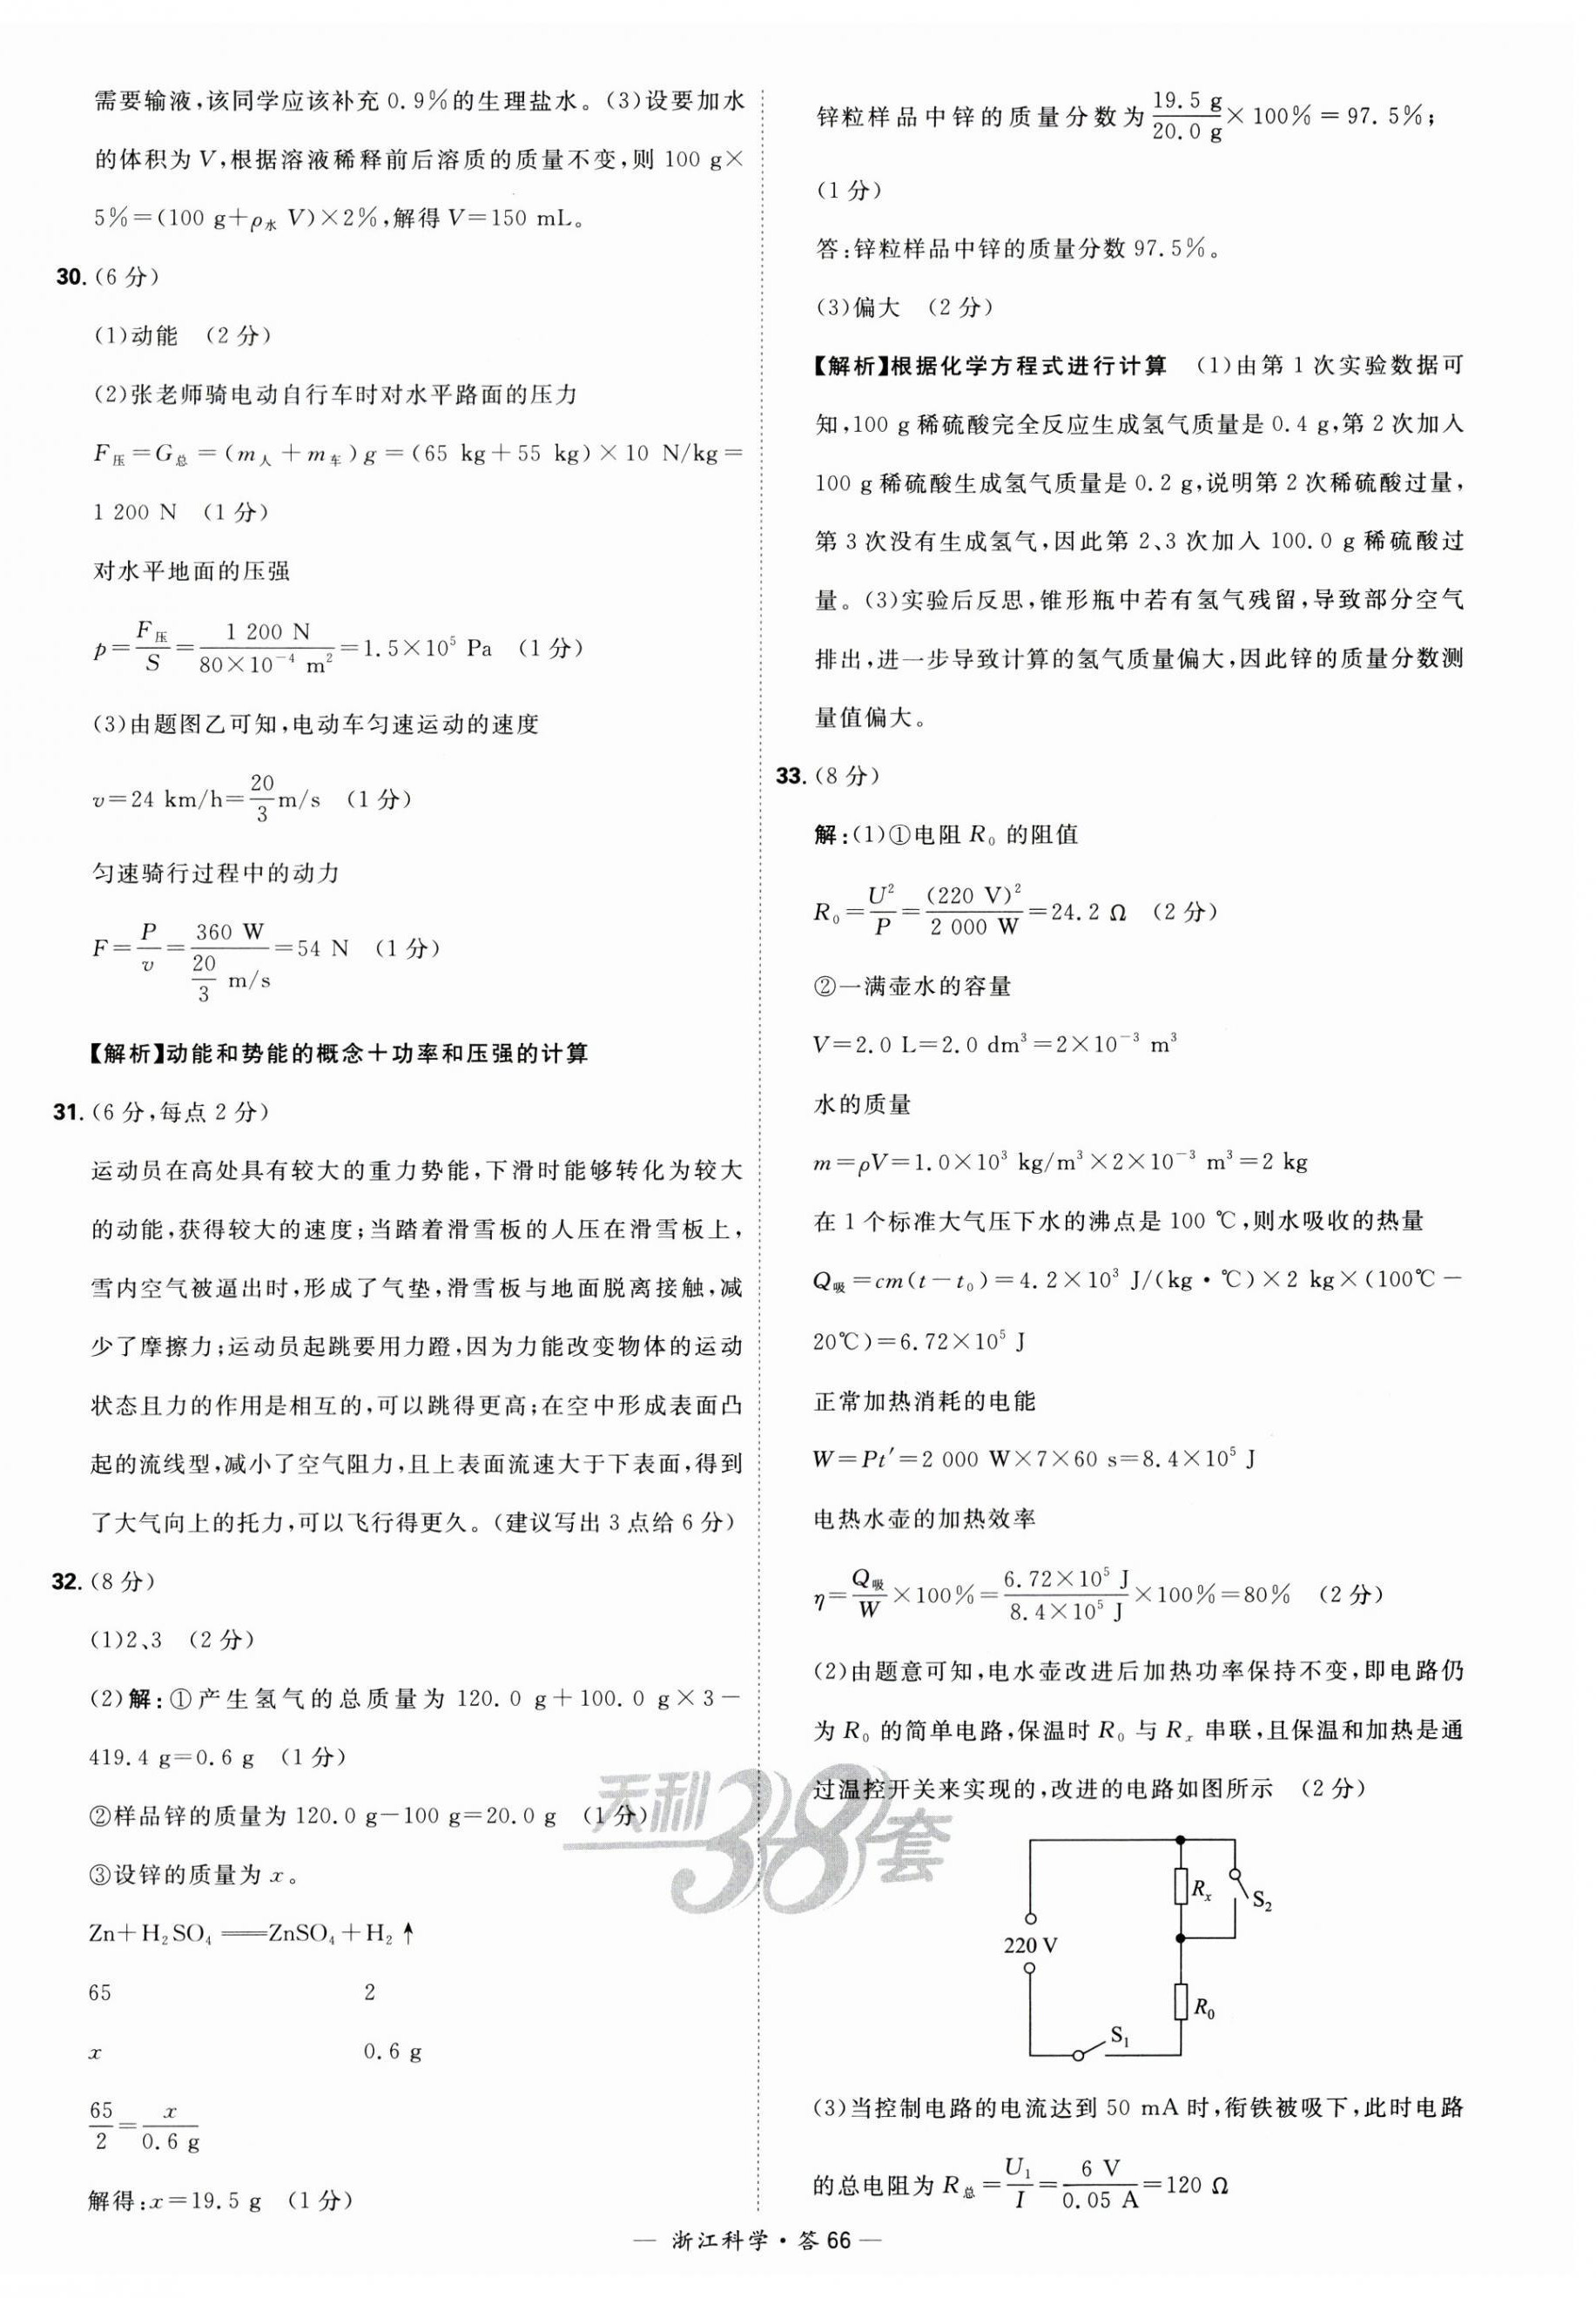 需要输液,该同学应该补充 0.9%的生理盐水。(3)设要加水
的体积为 V,根据溶液稀释前后溶质的质量不变,则 100 g×
5%=(100 g+ρ水 V)×2%,解得 V=150 mL。
30.(6 分)
(1)动能 (2 分)
(2)张老师骑电动自行车时对水平路面的压力
F压=G总=(m人+m车)g=(65 kg+55 kg)×10 N/kg=
1 200 N (1 分)
对水平地面的压强
p=F压/S=1 200 N/80×10⁻⁴ m²=1.5×10⁵ Pa (1 分)
(3)由题图乙可知,电动车匀速运动的速度
v=24 km/h=20/3 m/s (1 分)
匀速骑行过程中的动力
F=P/v=360 W/(20/3 m/s)=54 N (1 分)
【解析】动能和势能的概念+功率和压强的计算
31.(6 分,每点 2 分)
运动员在高处具有较大的重力势能,下滑时能够转化为较大
的动能,获得较大的速度;当踏着滑雪板的人压在滑雪板上,
雪内空气被逼出时,形成了气垫,滑雪板与地面脱离接触,减
少了摩擦力;运动员起跳要用力蹬,因为力能改变物体的运动
状态且力的作用是相互的,可以跳得更高;在空中形成表面凸
起的流线型,减小了空气阻力,且上表面流速大于下表面,得到
了大气向上的托力,可以飞行得更久。(建议写出 3 点给 6 分)
32.(8 分)
(1)2、3 (2 分)
(2)解:①产生氢气的总质量为 120.0 g+100.0 g×3-
419.4 g=0.6 g (1 分)
②样品锌的质量为 120.0 g-100 g=20.0 g (1 分)
③设锌的质量为 x。
Zn+H₂SO₄══ZnSO₄+H₂↑
65 2
x 0.6 g
65/2=x/0.6 g
解得:x=19.5 g (1 分)
锌粒样品中锌的质量分数为 19.5 g/20.0 g×100%=97.5%;
(1 分)
答:锌粒样品中锌的质量分数 97.5%。
(3)偏大 (2 分)
【解析】根据化学方程式进行计算 (1)由第 1 次实验数据可
知,100 g 稀硫酸完全反应生成氢气质量是 0.4 g,第 2 次加入
100 g 稀硫酸生成氢气质量是 0.2 g,说明第 2 次稀硫酸过量,
第 3 次没有生成氢气,因此第 2、3 次加入 100.0 g 稀硫酸过
量。(3)实验后反思,锥形瓶中若有氢气残留,导致部分空气
排出,进一步导致计算的氢气质量偏大,因此锌的质量分数测
量值偏大。
33.(8 分)
解:(1)①电阻 R₀ 的阻值
R₀=U²/P=(220 V)²/2 000 W=24.2 Ω (2 分)
②一满壶水的容量
V=2.0 L=2.0 dm³=2×10⁻³ m³
水的质量
m=ρV=1.0×10³ kg/m³×2×10⁻³ m³=2 kg
在 1 个标准大气压下水的沸点是 100 ℃,则水吸收的热量
Q吸=cm(t-t₀)=4.2×10³ J/(kg·℃)×2 kg×(100℃-
20℃)=6.72×10⁵ J
正常加热消耗的电能
W=Pt′=2 000 W×7×60 s=8.4×10⁵ J
电热水壶的加热效率
η=Q吸/W×100%=6.72×10⁵ J/8.4×10⁵ J×100%=80% (2 分)
(2)由题意可知,电水壶改进后加热功率保持不变,即电路仍
为 R₀ 的简单电路,保温时 R₀ 与 Rₓ 串联,且保温和加热是通
过温控开关来实现的,改进的电路如图所示 (2 分)
Rₓ
S₂
220 V
R₀
S₁
(3)当控制电路的电流达到 50 mA 时,衔铁被吸下,此时电路
的总电阻为 R总=U₁/I=6 V/0.05 A=120 Ω
天利38套
— 浙江科学·答 66 —